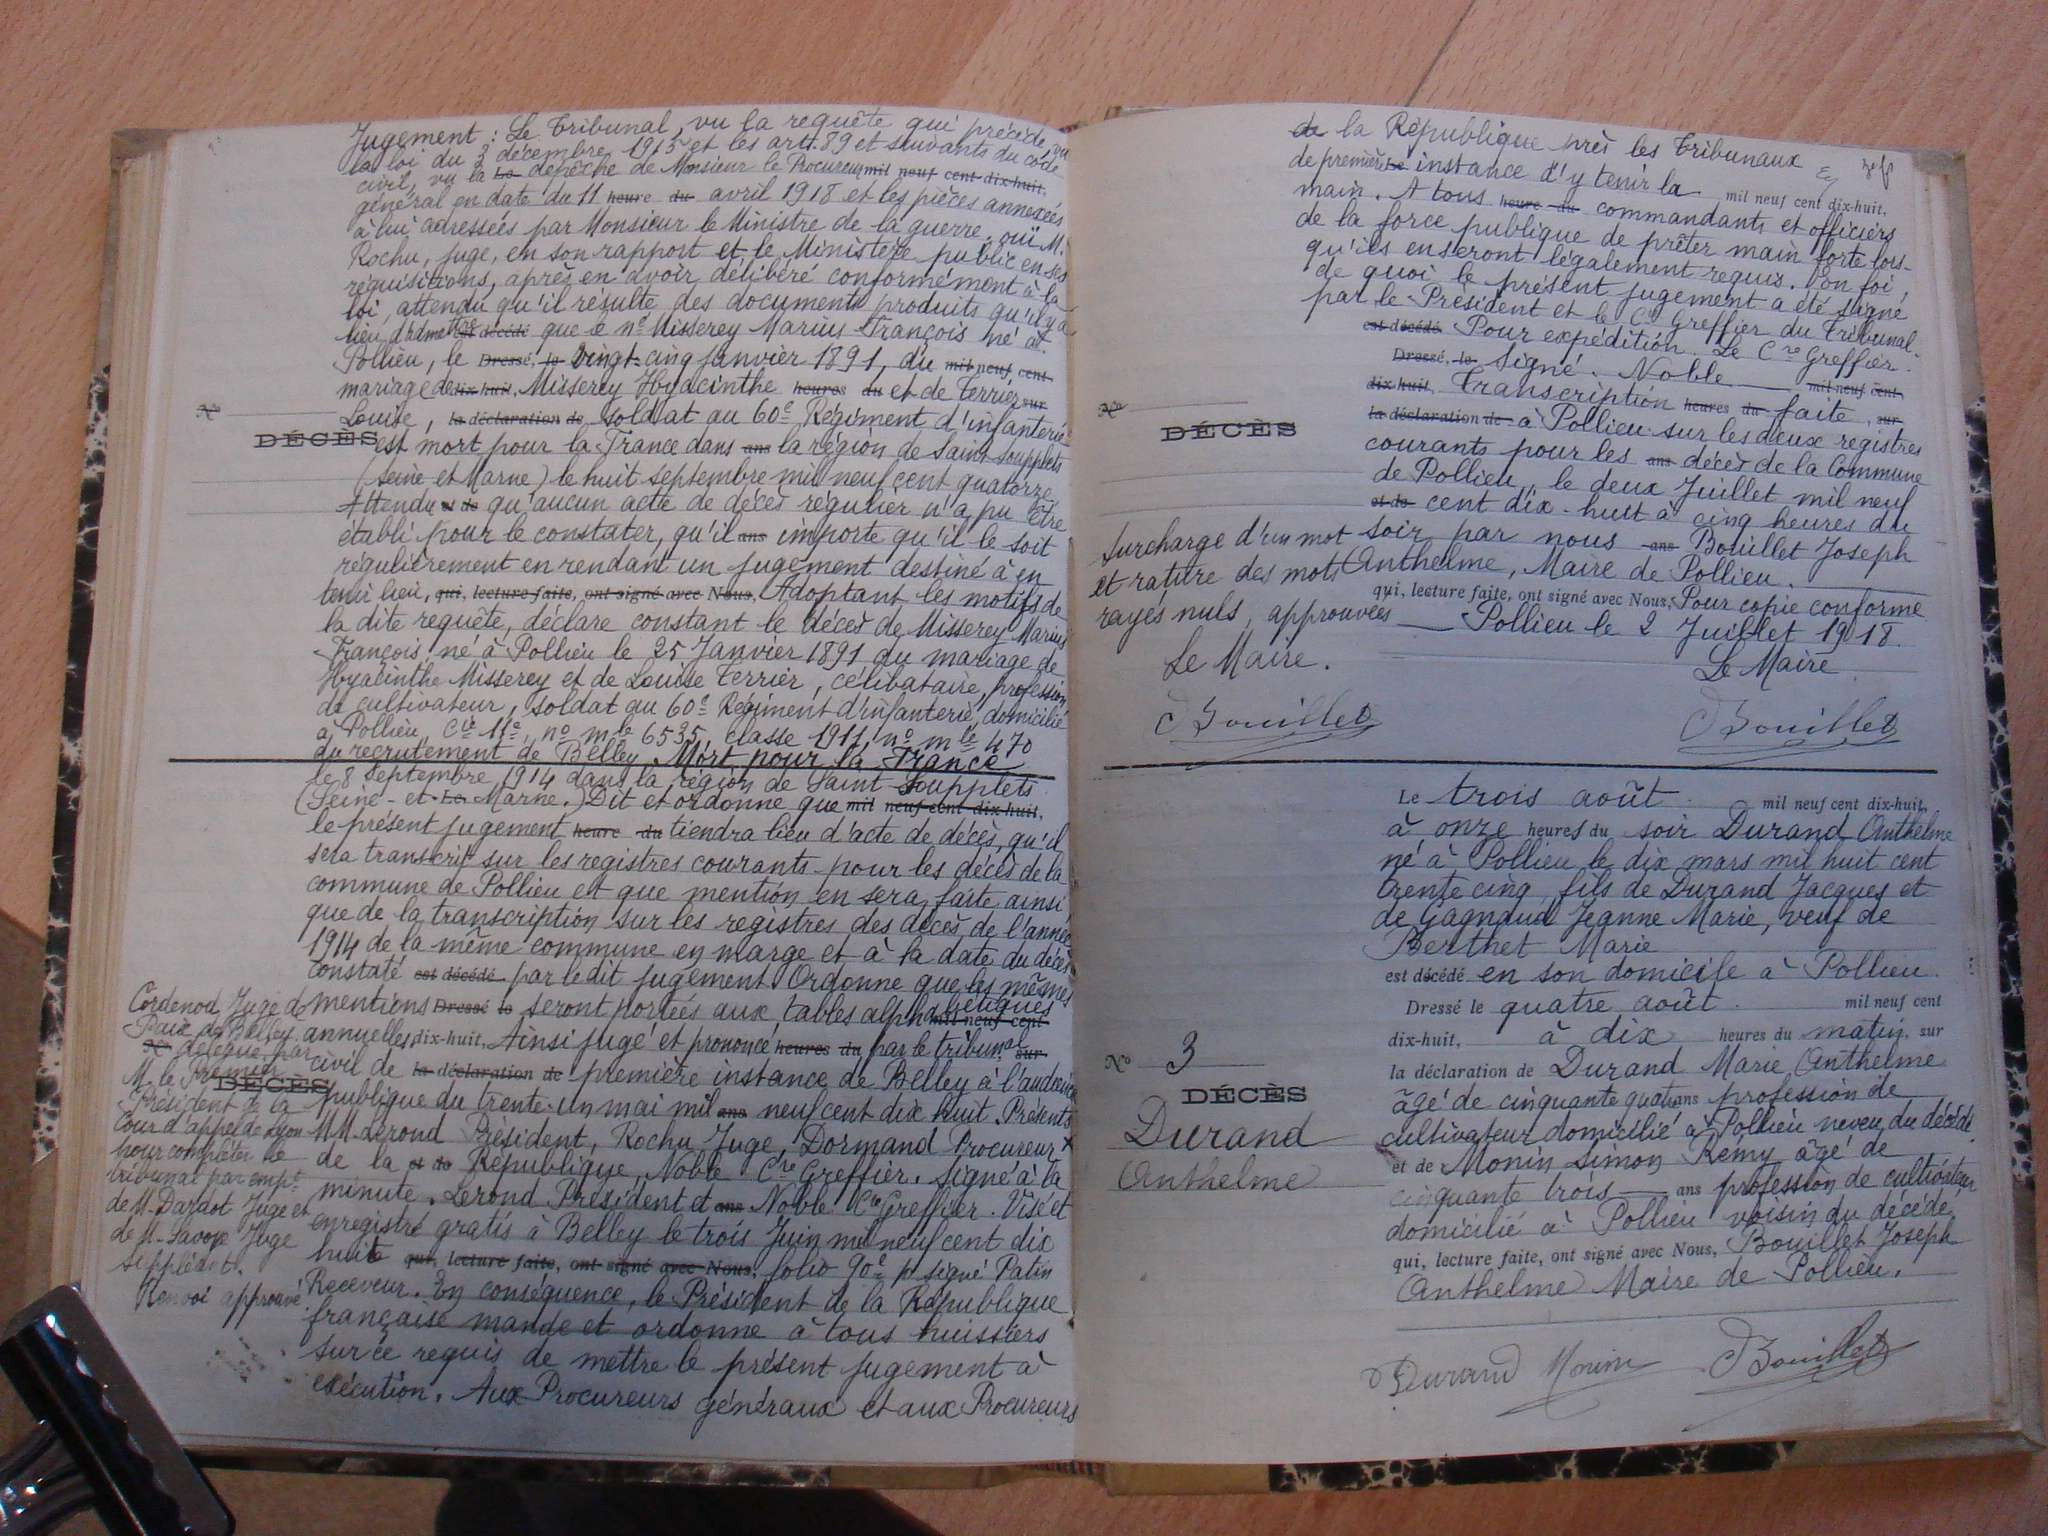 Jugement : Le Tribunal, vu la requête qui précède, vu
la loi du 3 décembre 1915 et les artt. 89 et suivants du code
civil, vu la Le dépêche de Monsieur le Procureur mil neuf cent dix-huit,
général en date du 11 heure du avril 1918 et les pièces annexées
à lui adressées par Monsieur le Ministre de la guerre, ouï M.
Rochu, juge, en son rapport et le Ministère public en ses
réquisitions, après en avoir délibéré conformément à la
loi, attendu qu'il résulte des documents produits qu'il y a
lieu d'admettre est décédé que le né Misserey Marius François né à
Pollieu, le Dressé, le vingt-cinq janvier 1891, du mil neuf cent
mariage de dix-huit, Misserey Hyacinthe heures du et de Terrier sur
Louise, la déclaration de soldat au 60e Régiment d'infanterie
No
DÉCÈS
est mort pour la France dans ans la région de Saint Soupplets
(Seine et Marne) le huit septembre mil neuf cent quatorze
Attendu et de qu'aucun acte de décès régulier n'a pu être
établi pour le constater, qu'il ans importe qu'il le soit
régulièrement en rendant un jugement destiné à en
tenir lieu, qui, lecture faite, ont signé avec Nous, Adoptant les motifs de
la dite requête, déclare constant le décès de Misserey Marius
François né à Pollieu le 25 Janvier 1891 du mariage de
Hyacinthe Misserey et de Louise Terrier, célibataire, profession
de cultivateur, soldat au 60e Régiment d'infanterie, domicilié
à Pollieu, Cie 11e, no mle 6535, classe 1911 no mle 470
du recrutement de Belley, Mort pour la France
le 8 septembre 1914 dans la région de Saint Soupplets
(Seine-et-Le Marne.) Dit et ordonne que mil neuf cent dix-huit,
le présent jugement heure du tiendra lieu d'acte de décès, qu'il
sera transcrit sur les registres courants pour les décès de la
commune de Pollieu et que mention en sera faite ainsi
que de la transcription sur les registres des décès de l'année
1914 de la même commune en marge et à la date du décès
constaté est décédé par le dit jugement. Ordonne que les mêmes
mentions Dressé le seront portées aux tables alphabétiques mil neuf cent
annuelles dix-huit, Ainsi jugé et prononcé heures du par le tribunal sur
civil de la déclaration de première instance de Belley à l'audience
publique du trente-un mai mil ans neuf cent dix huit. Présents
MM. Lerond Président, Rochu Juge, Dormand Procureur
de la et de République, Noble Cre Greffier. Signé à la
minute. Lerond Président et ans Noble Cre Greffier. Visé et
enregistré gratis à Belley le trois Juin mil neuf cent dix
huit qui, lecture faite, ont signé avec Nous, folio 90e signé Patin
Receveur. En conséquence, le Président de la République
française mande et ordonne à tous huissiers
sur ce requis de mettre le présent jugement à
exécution. Aux Procureurs généraux et aux Procureurs
Cordenod Juge de
Paix de Belley
No délégué par
M. le Premier
DÉCÈS
Président de la
Cour d'appel de Lyon
pour compléter le
tribunal par empt
de M. Dardot Juge et
de M. Savoye Juge
suppléant.
Renvoi approuvé
de la République près les Tribunaux
de première Le instance d'y tenir la mil neuf cent dix-huit,
main. A tous heure du commandants et officiers
de la force publique de prêter main forte lors-
qu'ils en seront légalement requis. En foi
de quoi le présent jugement a été signé
par le Président et le Cre Greffier du Tribunal.
est décédé Pour expédition. Le Cre Greffier.
Dressé, le signé. Noble mil neuf cent
dix-huit, Transcription heures du faite, sur
la déclaration de à Pollieu sur les deux registres
No
DÉCÈS
courants pour les ans décès de la Commune
de Pollieu, le deux Juillet mil neuf
et de cent dix-huit à cinq heures du
soir par nous ans Bouillet Joseph
Anthelme, Maire de Pollieu.
qui, lecture faite, ont signé avec Nous, Pour copie conforme
Pollieu le 2 Juillet 1918.
Le Maire
Bouillet
Surcharge d'un mot
et rature des mots
rayés nuls, approuvées
Le Maire.
Bouillet
Le trois août mil neuf cent dix-huit,
à onze heures du soir Durand Anthelme
né à Pollieu le dix mars mil huit cent
trente cinq, fils de Durand Jacques et
de Gagnaud Jeanne Marie, veuf de
Berthet Marie
est décédé en son domicile à Pollieu.
Dressé le quatre août mil neuf cent
dix-huit, à dix heures du matin, sur
la déclaration de Durand Marie Anthelme
âgé de cinquante quatre ans profession de
cultivateur domicilié à Pollieu neveu du décédé
et de Monin Simon Rémy âgé de
cinquante trois ans profession de cultivateur
domicilié à Pollieu voisin du décédé,
qui, lecture faite, ont signé avec Nous, Bouillet Joseph
Anthelme Maire de Pollieu.
No 3
DÉCÈS
Durand
Anthelme
Durand Monin Bouillet